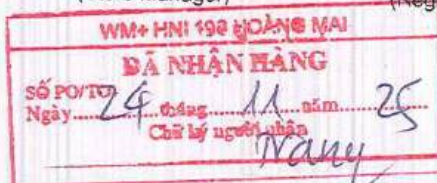 WM+ HNI 198 HOÀNG MAI
ĐÃ NHẬN HÀNG
SỐ PO/TO
Ngày 24 tháng 11 năm 25
Chữ ký người nhận